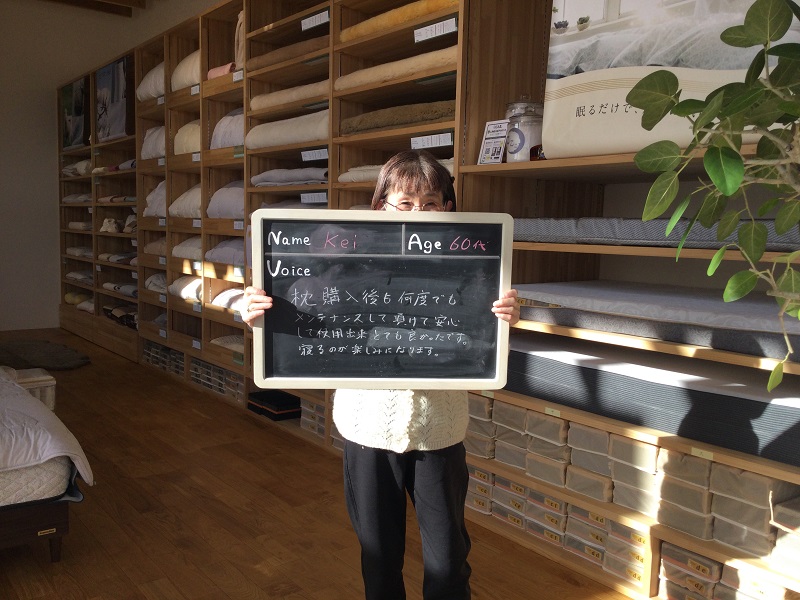 眠るだけで
Name Kei Age 60代
Voice
枕購入後も何度でも
メンテナンスして頂けて安心
して使用出来とても良かったです。
寝るのが楽しみになります。